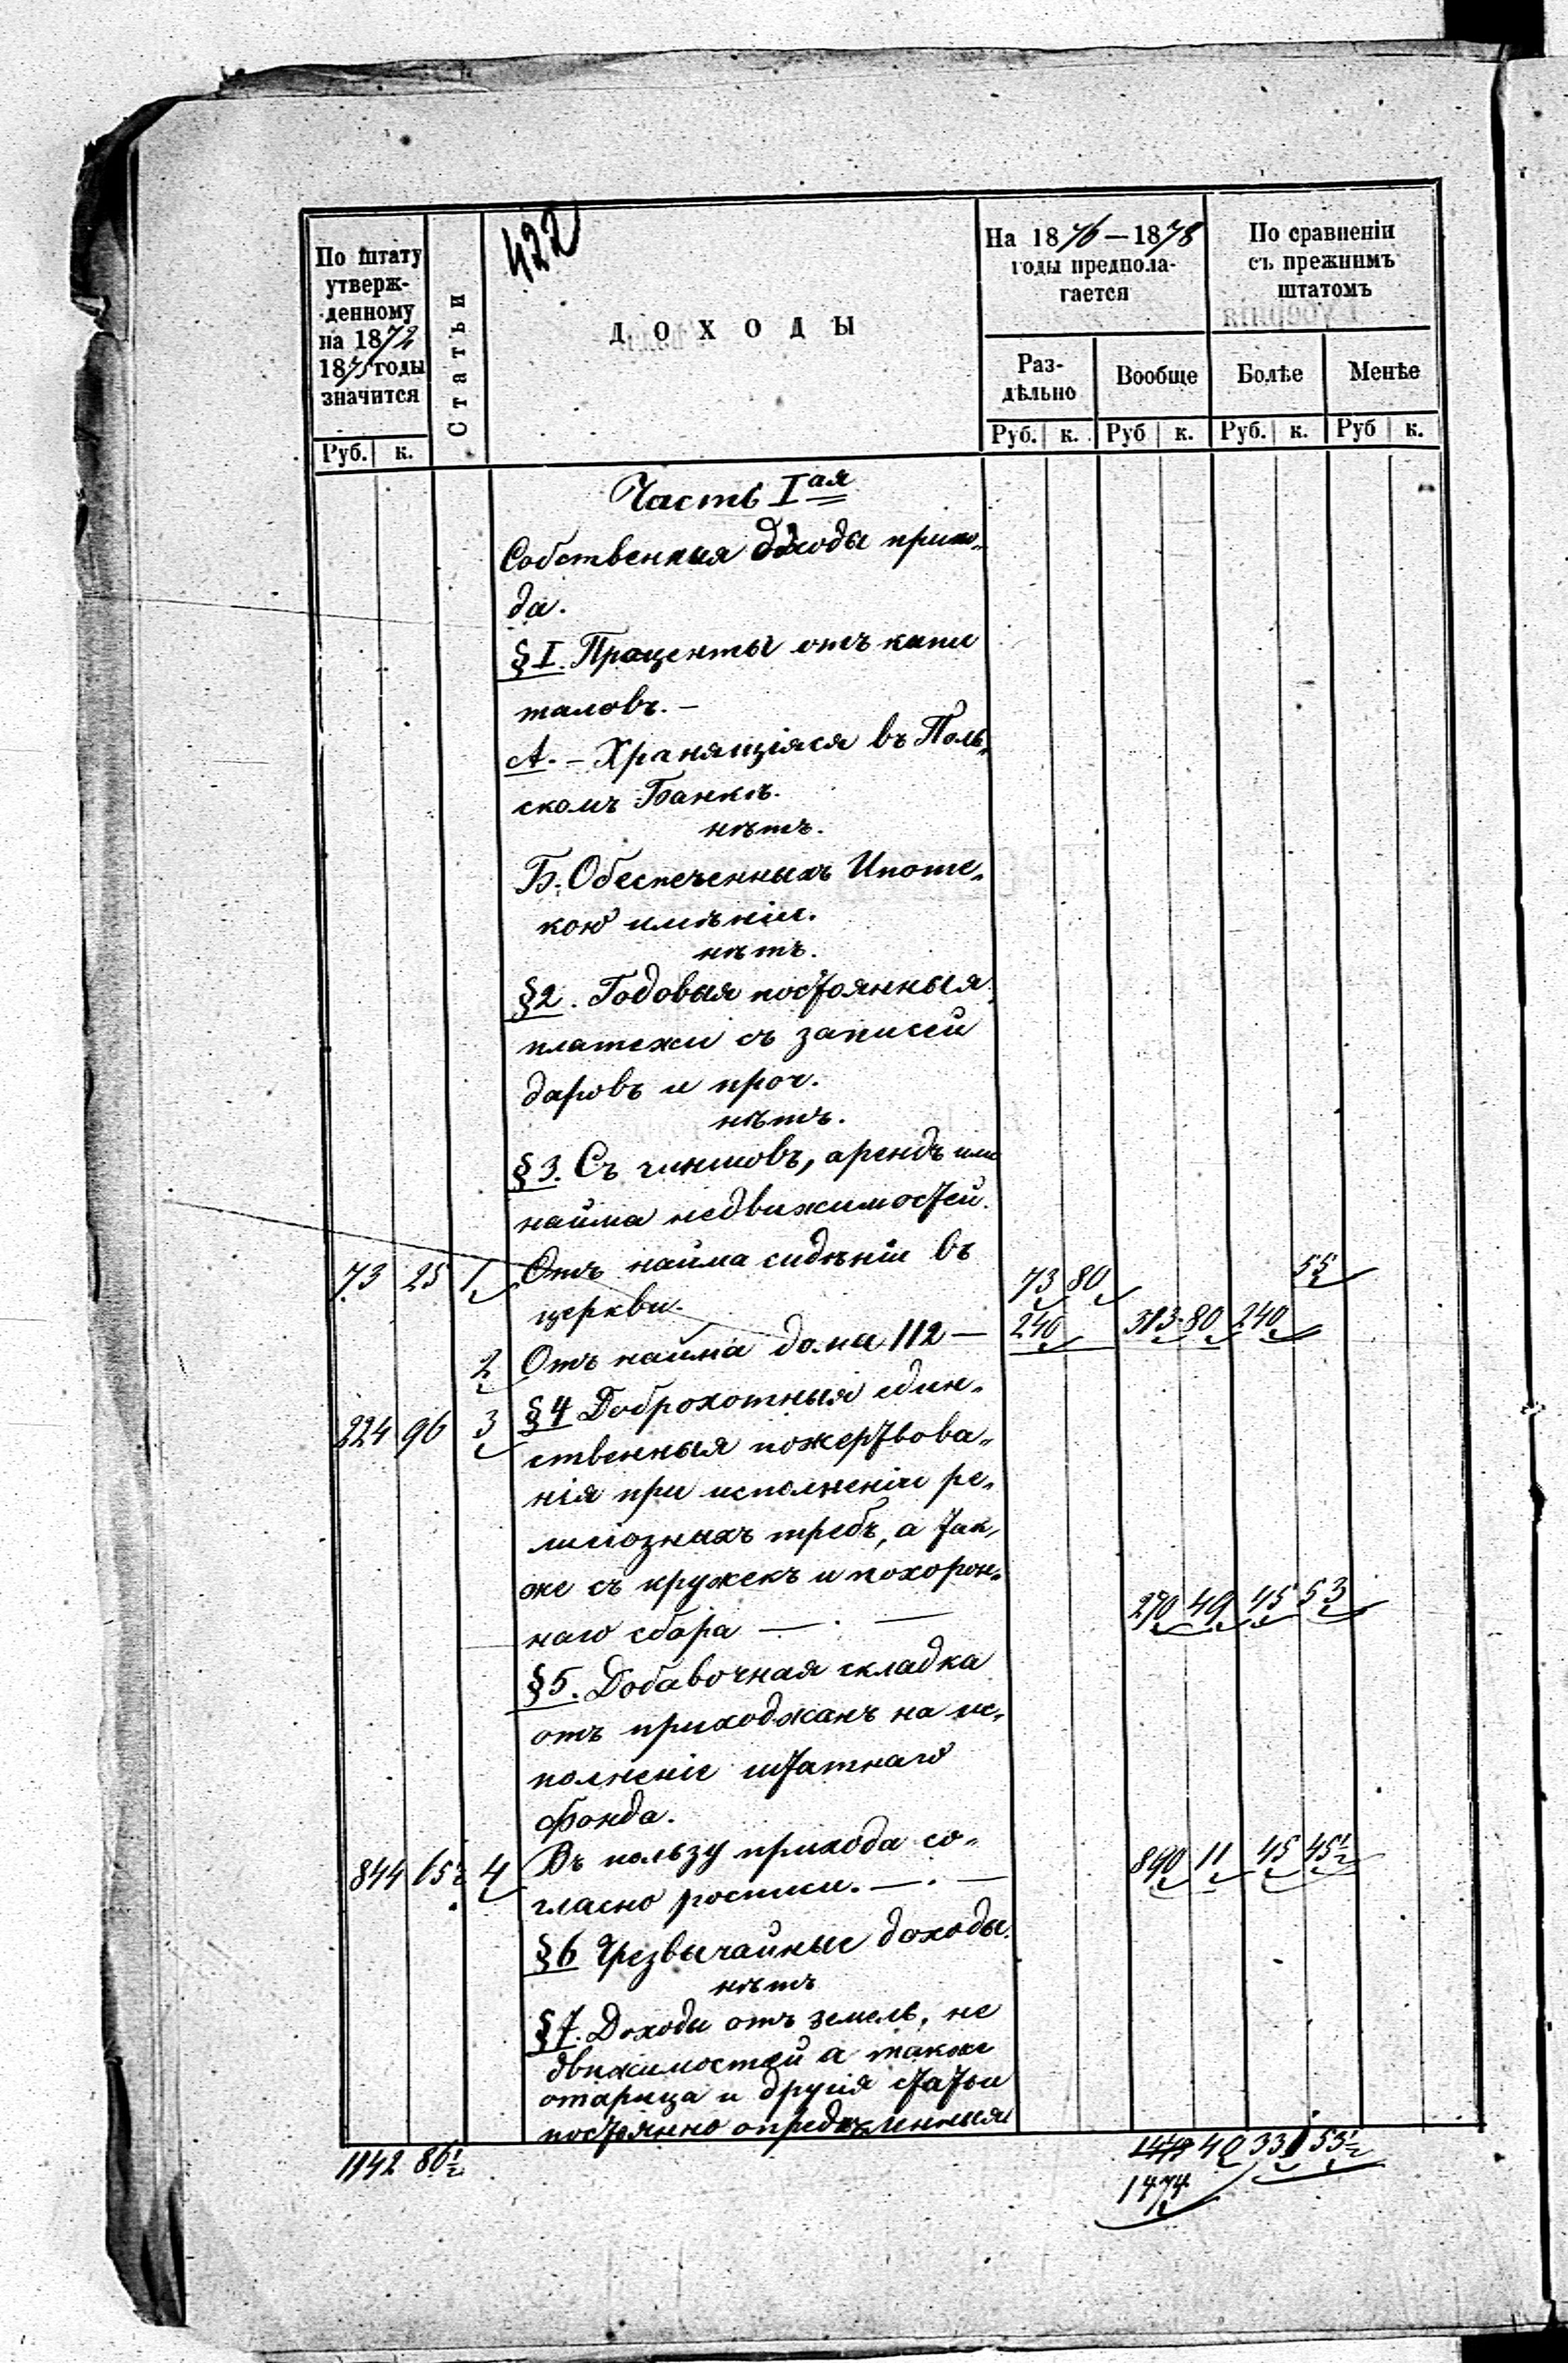 422
По штату
утверж-
денному
на 1872
1875 годы
значится
Руб. к.
Статьи
ДОХОДЫ
На 1876 — 1878
годы предпола-
гается
Раз-
дѣльно
Руб. к.
Вообще
Руб к.
По сравненіи
съ прежнимъ
штатомъ
Болѣе
Руб. к.
Менѣе
Руб к.
Часть Iая
Собственныя доходы прихо„
да.
§ I. Проценты отъ капи
таловъ. —
А. — Хранящіяся въ Поль„
скомъ Банкѣ.
нѣтъ.
Б. Обеспеченныхъ Ипоте„
кою имѣніи.
нѣтъ.
§2. Годовыя постоянныя
платежи съ записей
даровъ и проч.
нѣтъ.
§ 3. Съ чиншовъ, арендъ или
найма недвижимостей.
73 25 1 Отъ найма сидѣніи въ 73 80 55
церкви.
2 Отъ найма дома 112 — 240 313 80 240
224 96 3 §4 Доброхотныя един„
ственныя пожертвова„
нія при исполненіи ре„
лигіозныхъ требъ, а так„
же съ кружекъ и похорон„
наго сбора — . — 270 49 45 53
§5. Добавочная складка
отъ прихожанъ на ис„
полненіе штатнаго
фонда.
844 65½ 4 Въ пользу прихода со„ 890 11 45 45½
гласно росписи. — . —
§6 Чрезвычайные доходы.
нѣтъ
§7. Доходы отъ земель, не
движимостей а также
и другія статьи
постоянно опредѣленныя
1142 86½ 40 331 53½
1474